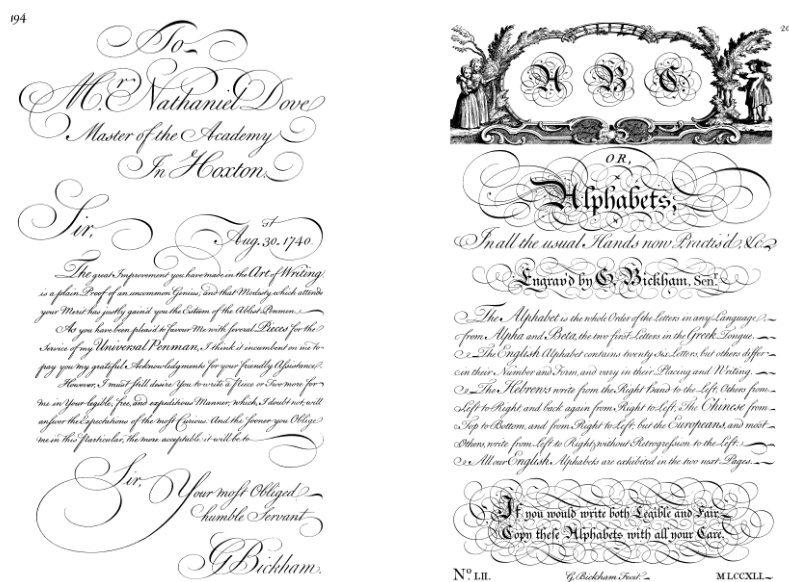 194
To
Mr. Nathaniel Dove
Master of the Academy
In Hoxton.
Sir,
Aug.st 30. 1740.
The great Improvement you have made in the Art of Writing,
is a plain Proof of an uncommon Genius, and that Modesty which attends
your Merit has justly gain'd you the Esteem of the Ablest Penmen.
As you have been pleas'd to favour Me with several Pieces for the
Service of my Universal Penman, I think it incumbent on me to
pay you my grateful Acknowledgments for your friendly Assistance.
However, I must still desire You to write a Piece or Two more for
me in Your legible, free, and expeditious Manner, which, I doubt not, will
answer the Expectations of the most Curious. And the sooner you Oblige
me in this Particular, the more acceptable it will be to
Sir,
Your most Obliged
humble Servant
G Bickham.
A B C.
OR,
Alphabets,
In all the usual Hands now Practis'd, &c.
Engrav'd by G. Bickham, Senr.
The Alphabet is the whole Order of the Letters in any Language
from Alpha and Beta, the two first Letters in the Greek Tongue.
The English Alphabet contains twenty six Letters, but others differ
in their Number and Form, and vary in their Placing and Writing.
The Hebrews write from the Right Hand to the Left; Others from
Left to Right and back again from Right to Left; The Chinese from
Top to Bottom, and from Right to Left; but the Europeans, and most
Others, write from Left to Right, without Retrogression to the Left.
All our English Alphabets are exhibited in the two next Pages.
If you would write both Legible and Fair,
Copy these Alphabets with all your Care.
No. LII.
G. Bickham Fecit.
MLCCXLI